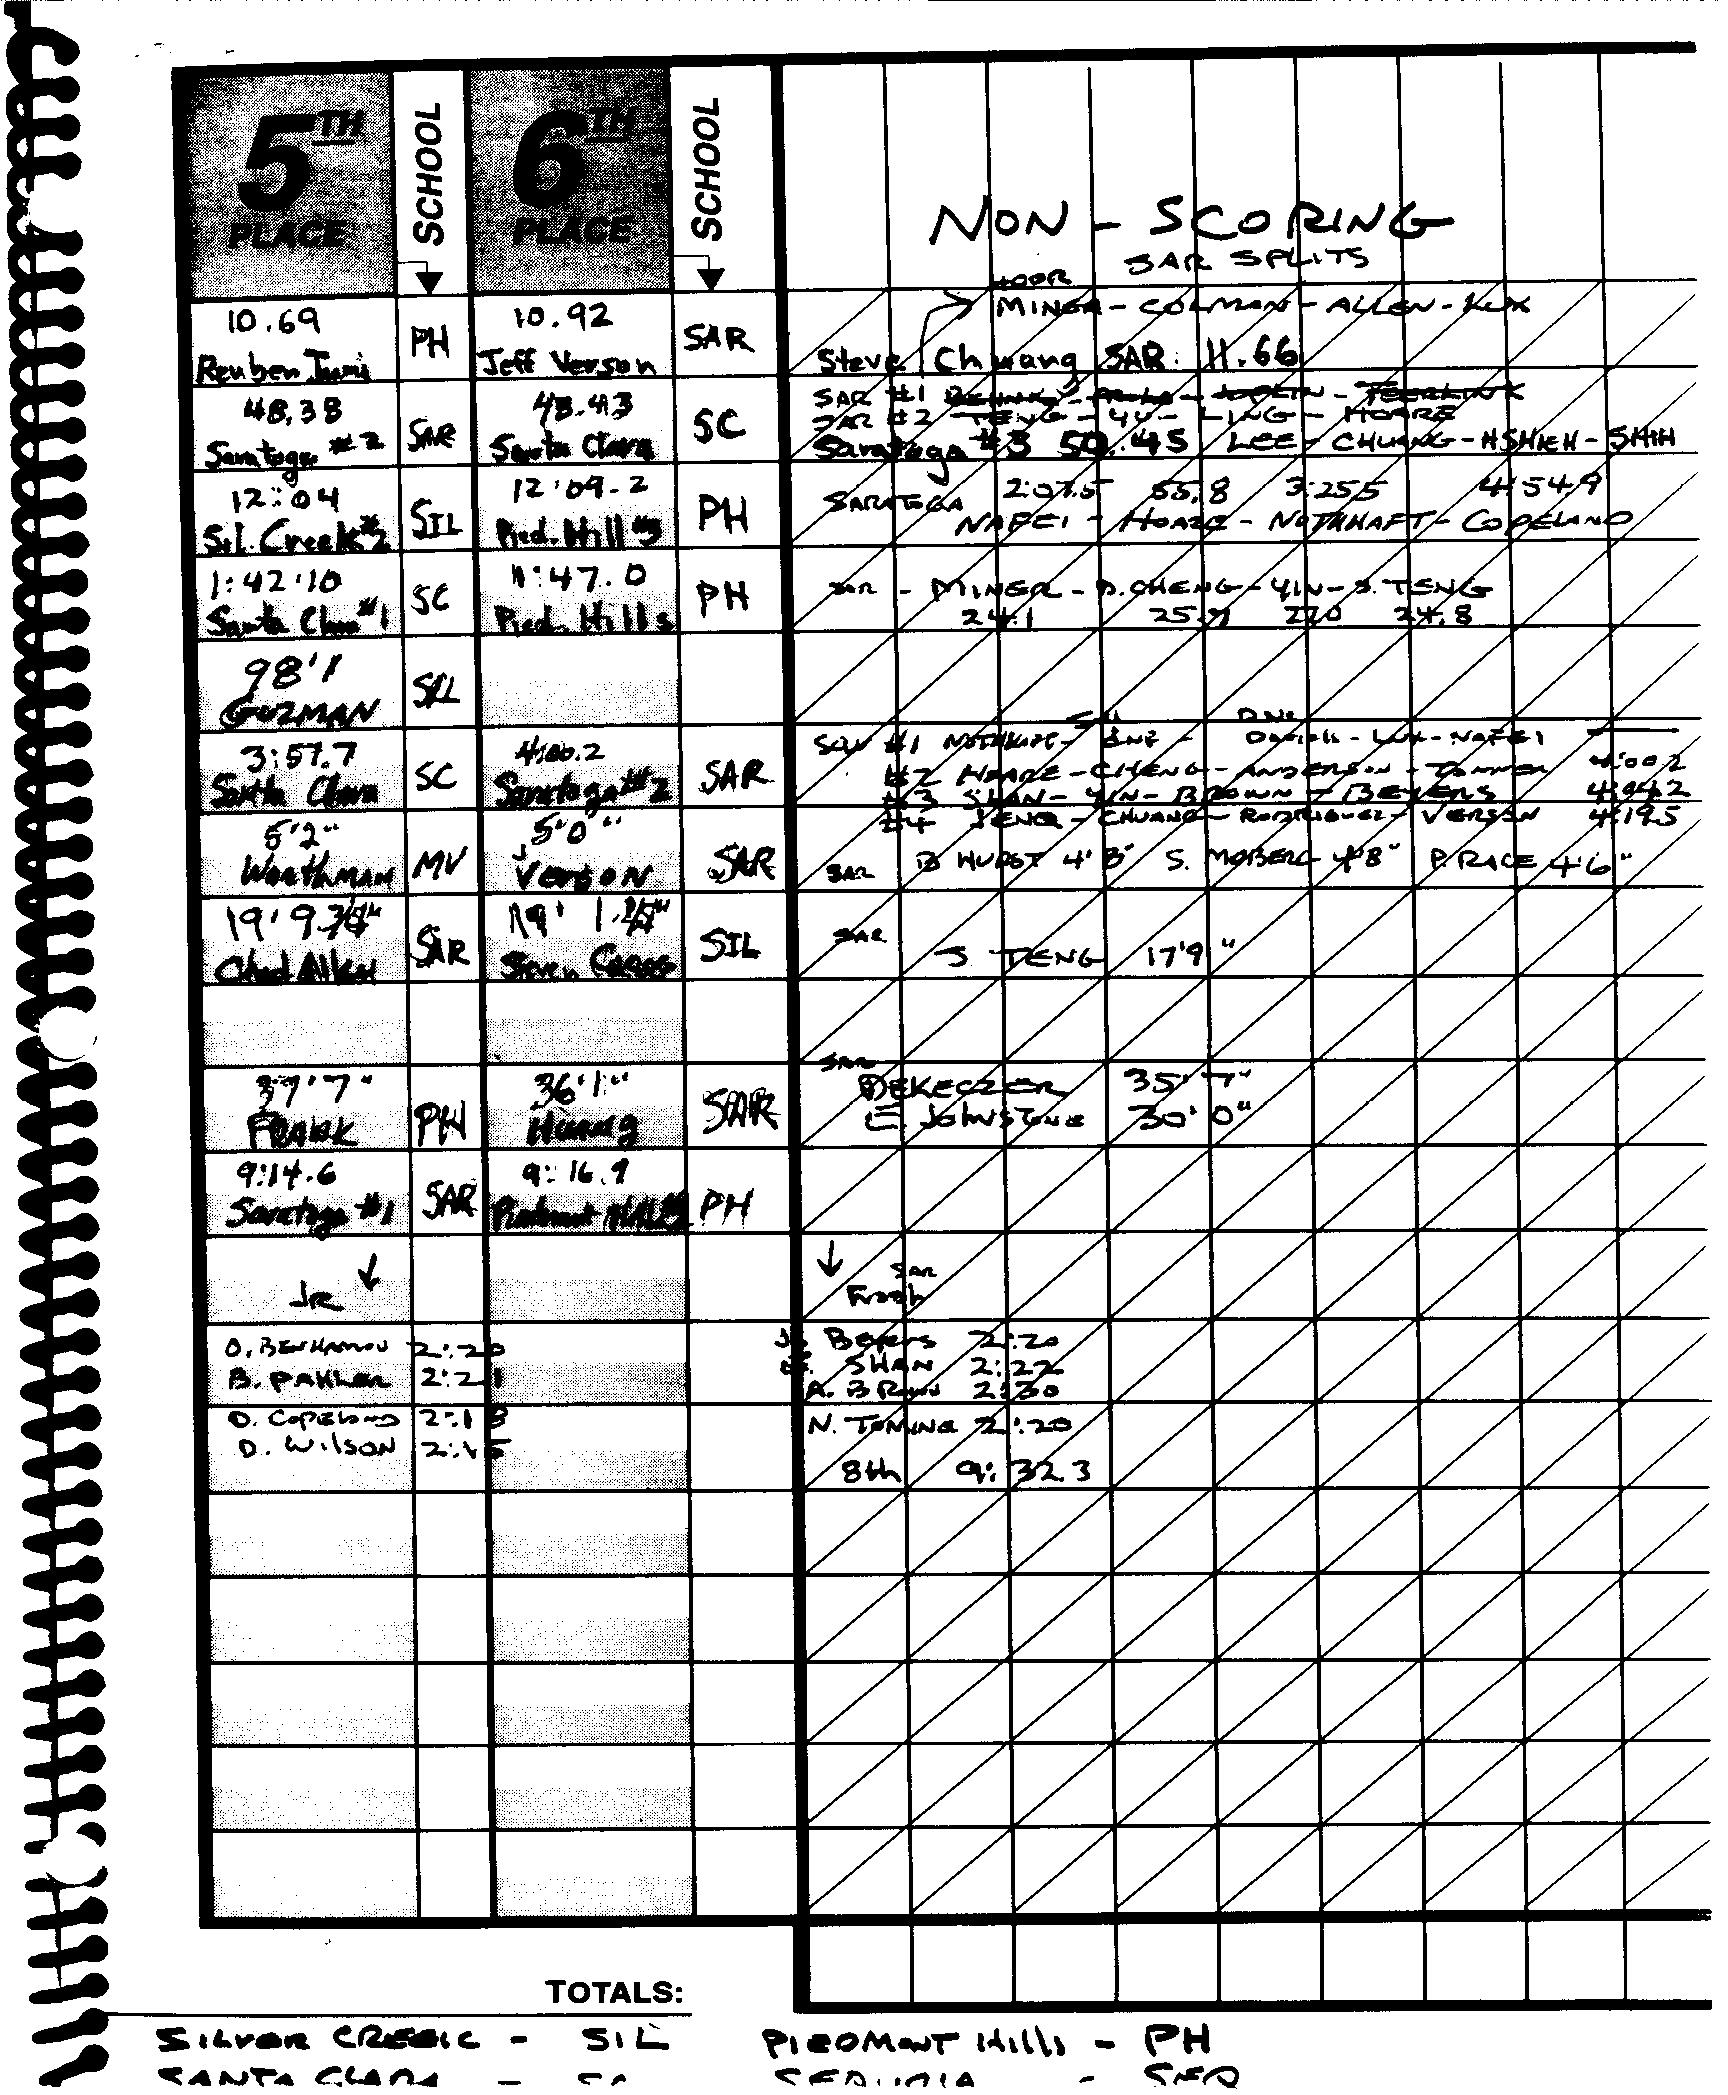 5TH PLACE SCHOOL 6TH PLACE SCHOOL
NON - SCORING
SAR SPLITS
MINER - COLMAN - ALLEN - LUX
10.69 PH 10.92 SAR
Reuben Jeff Verson Steve Chuang SAR 11.66
SAR #1
48.38 48.43 SAR #2 TENG - YU - LING - HOARE
Saratoga #2 SAR Santa Clara SC Saratoga #3 50.45 LEE - CHUANG - HSHIEH - SHIH
12:04 12:09.2 SARATOGA 2:07.5 55.8 3:25.5 4:54.9
Sil. Creek #2 SIL Pied. Hills PH NAFEI - HOARE - NOTHHAFT - COPELAND
1:42.10 1:47.0 SAR - MINER - D. CHENG - YIN - S. TENG
Santa Clara #1 SC Pied. Hills PH 24.1 25.9 22.0 24.8
98'1
GUZMAN SIL
3:57.7 4:00.2 #1 - LUX - NAFEI
Santa Clara SC Saratoga #2 SAR #2 HOARE - CHENG - ANDERSON - 4:00.2
#3 SHAN - YIN - BROWN - BEYERS 4:04.2
#4 - CHUANG - RODRIGUEZ - VERSON 4:19.5
5'2" 5'0"
Worthman MV J Verson SAR SAR D HURST 4'8" S. MOBERG 4'8" P. RACE 4'6"
19'9.75" 19' SAR
Chad Allen SAR Steven SIL S TENG 17'9"
SAR
37'7" 36'1" DEKECZER 35'7"
FRANK PH Huang SAR E. Johnstone 30'0"
9:14.6 9:16.9
Saratoga #1 SAR Piedmont Hills PH
SAR
JR Frosh
D. BENHAMOU 2:20 Beyers 2:20
B. PAHLER 2:21 SHAN 2:22
A. Brown 2:30
D. Copeland 2:18 N. 2:20
D. WILSON 2:15
8th 9:32.3
TOTALS:
SILVER CREEK - SIL PIEDMONT Hills - PH
SANTA CLARA - SC SEQUOIA - SEQ